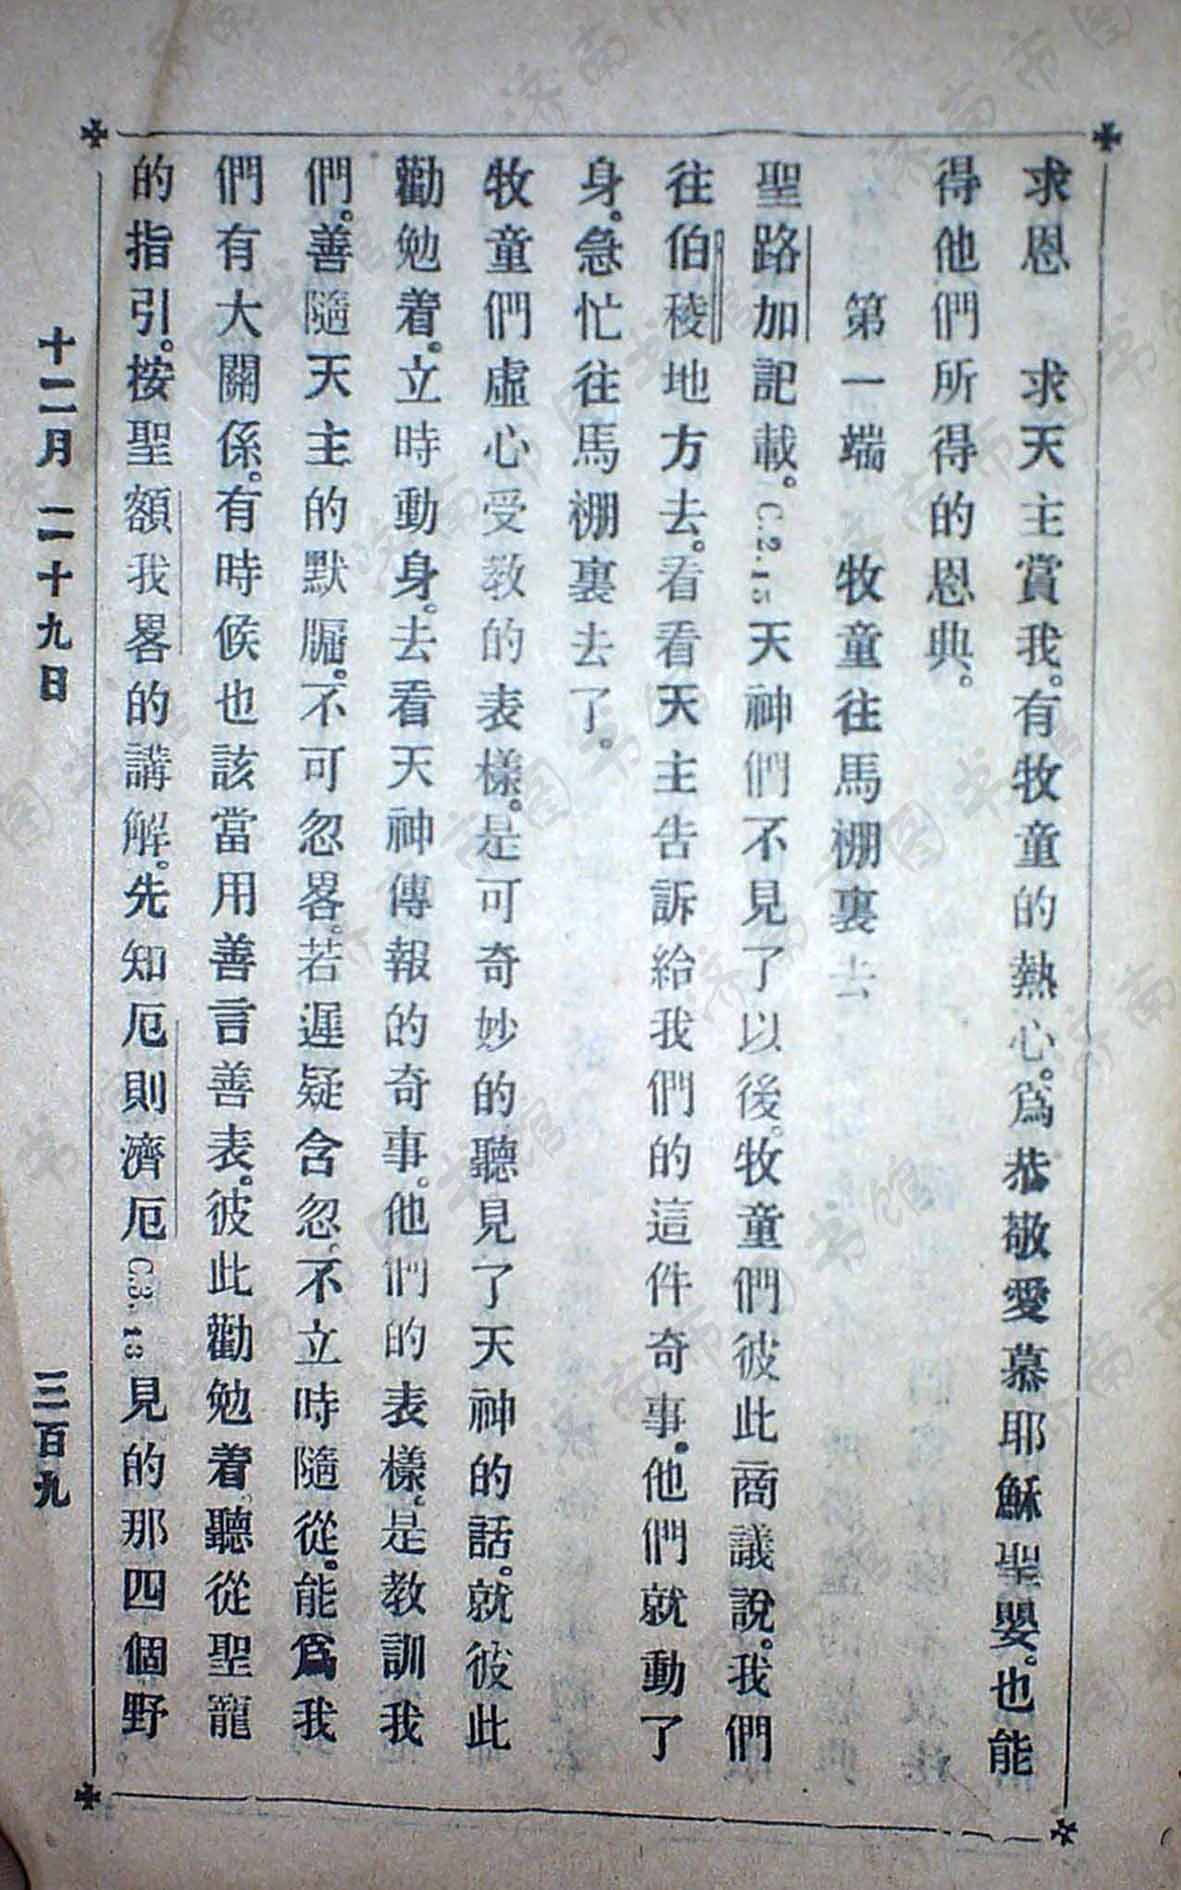 求恩　求天主賞我。有牧童的熱心。爲恭敬愛慕耶穌聖嬰。也能
得他們所得的恩典。
第一端　牧童往馬棚裏去
聖路加記載。C.2.15天神們不見了以後。牧童們彼此商議說。我們
往伯稜地方去。看看天主告訴給我們的這件奇事。他們就動了
身。急忙往馬棚裏去了。
牧童們虛心受教的表樣。是可奇妙的聽見了天神的話。就彼此
勸勉着。立時動身。去看天神傳報的奇事。他們的表樣。是教訓我
們。善隨天主的默牖。不可忽畧。若遲疑含忽。不立時隨從。能爲我
們有大關係。有時候也該當用善言善表。彼此勸勉着。聽從聖寵
的指引。按聖額我畧的講解。先知厄則濟厄C.3.13見的那四個野
十二月二十九日　三百九